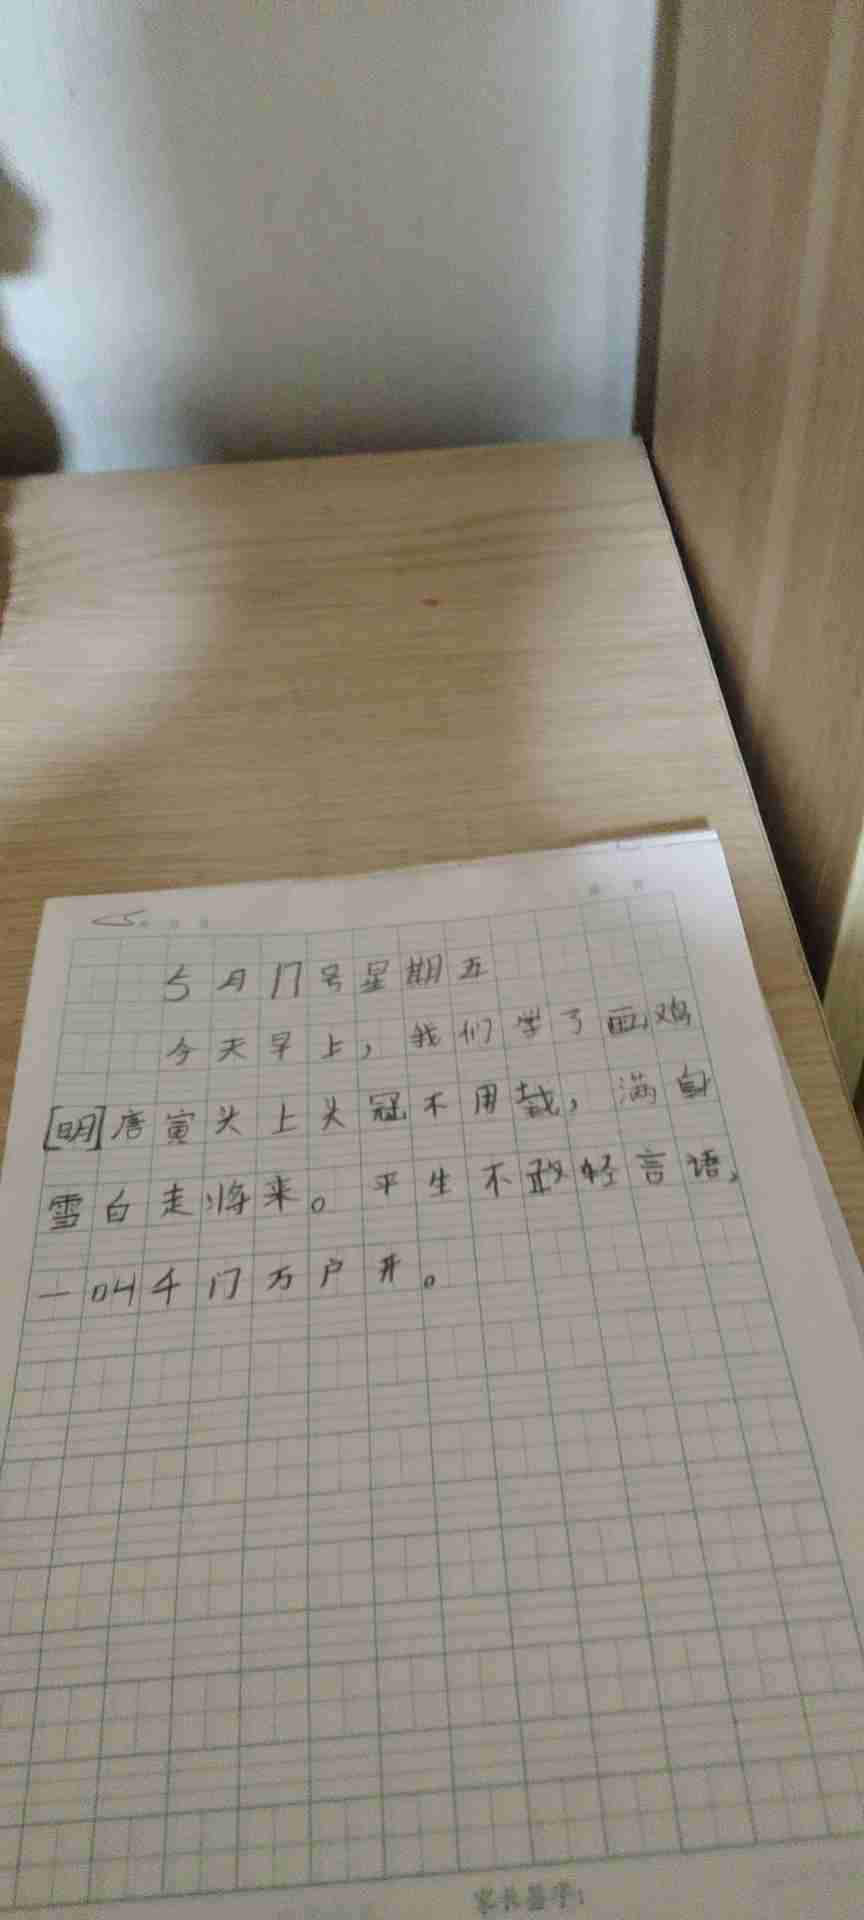 5月17号星期五
今天早上，我们学了画鸡
[明]唐寅头上头冠不用裁，满身
雪白走将来。平生不敢轻言语，
一叫千门万户开。
家长签字：